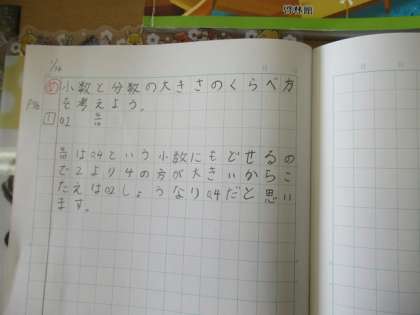 啓林館
1/14
め 小数と分数の大きさのくらべ方
を考えよう。
P36
1 0.2 4/10
4/10は0.4という小数にもどせるの
で2より4の方が大きいからこ
たえは0.2しょうなり0.4だと思い
ます。